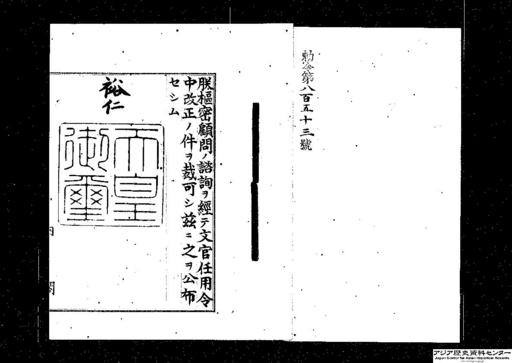 勅令第八百五十三號
朕樞密顧問ノ諮詢ヲ經テ文官任用令
中改正ノ件ヲ裁可シ茲ニ之ヲ公布
セシム
裕仁
天皇
御璽
アジア歴史資料センター
Japan Center for Asian Historical Records